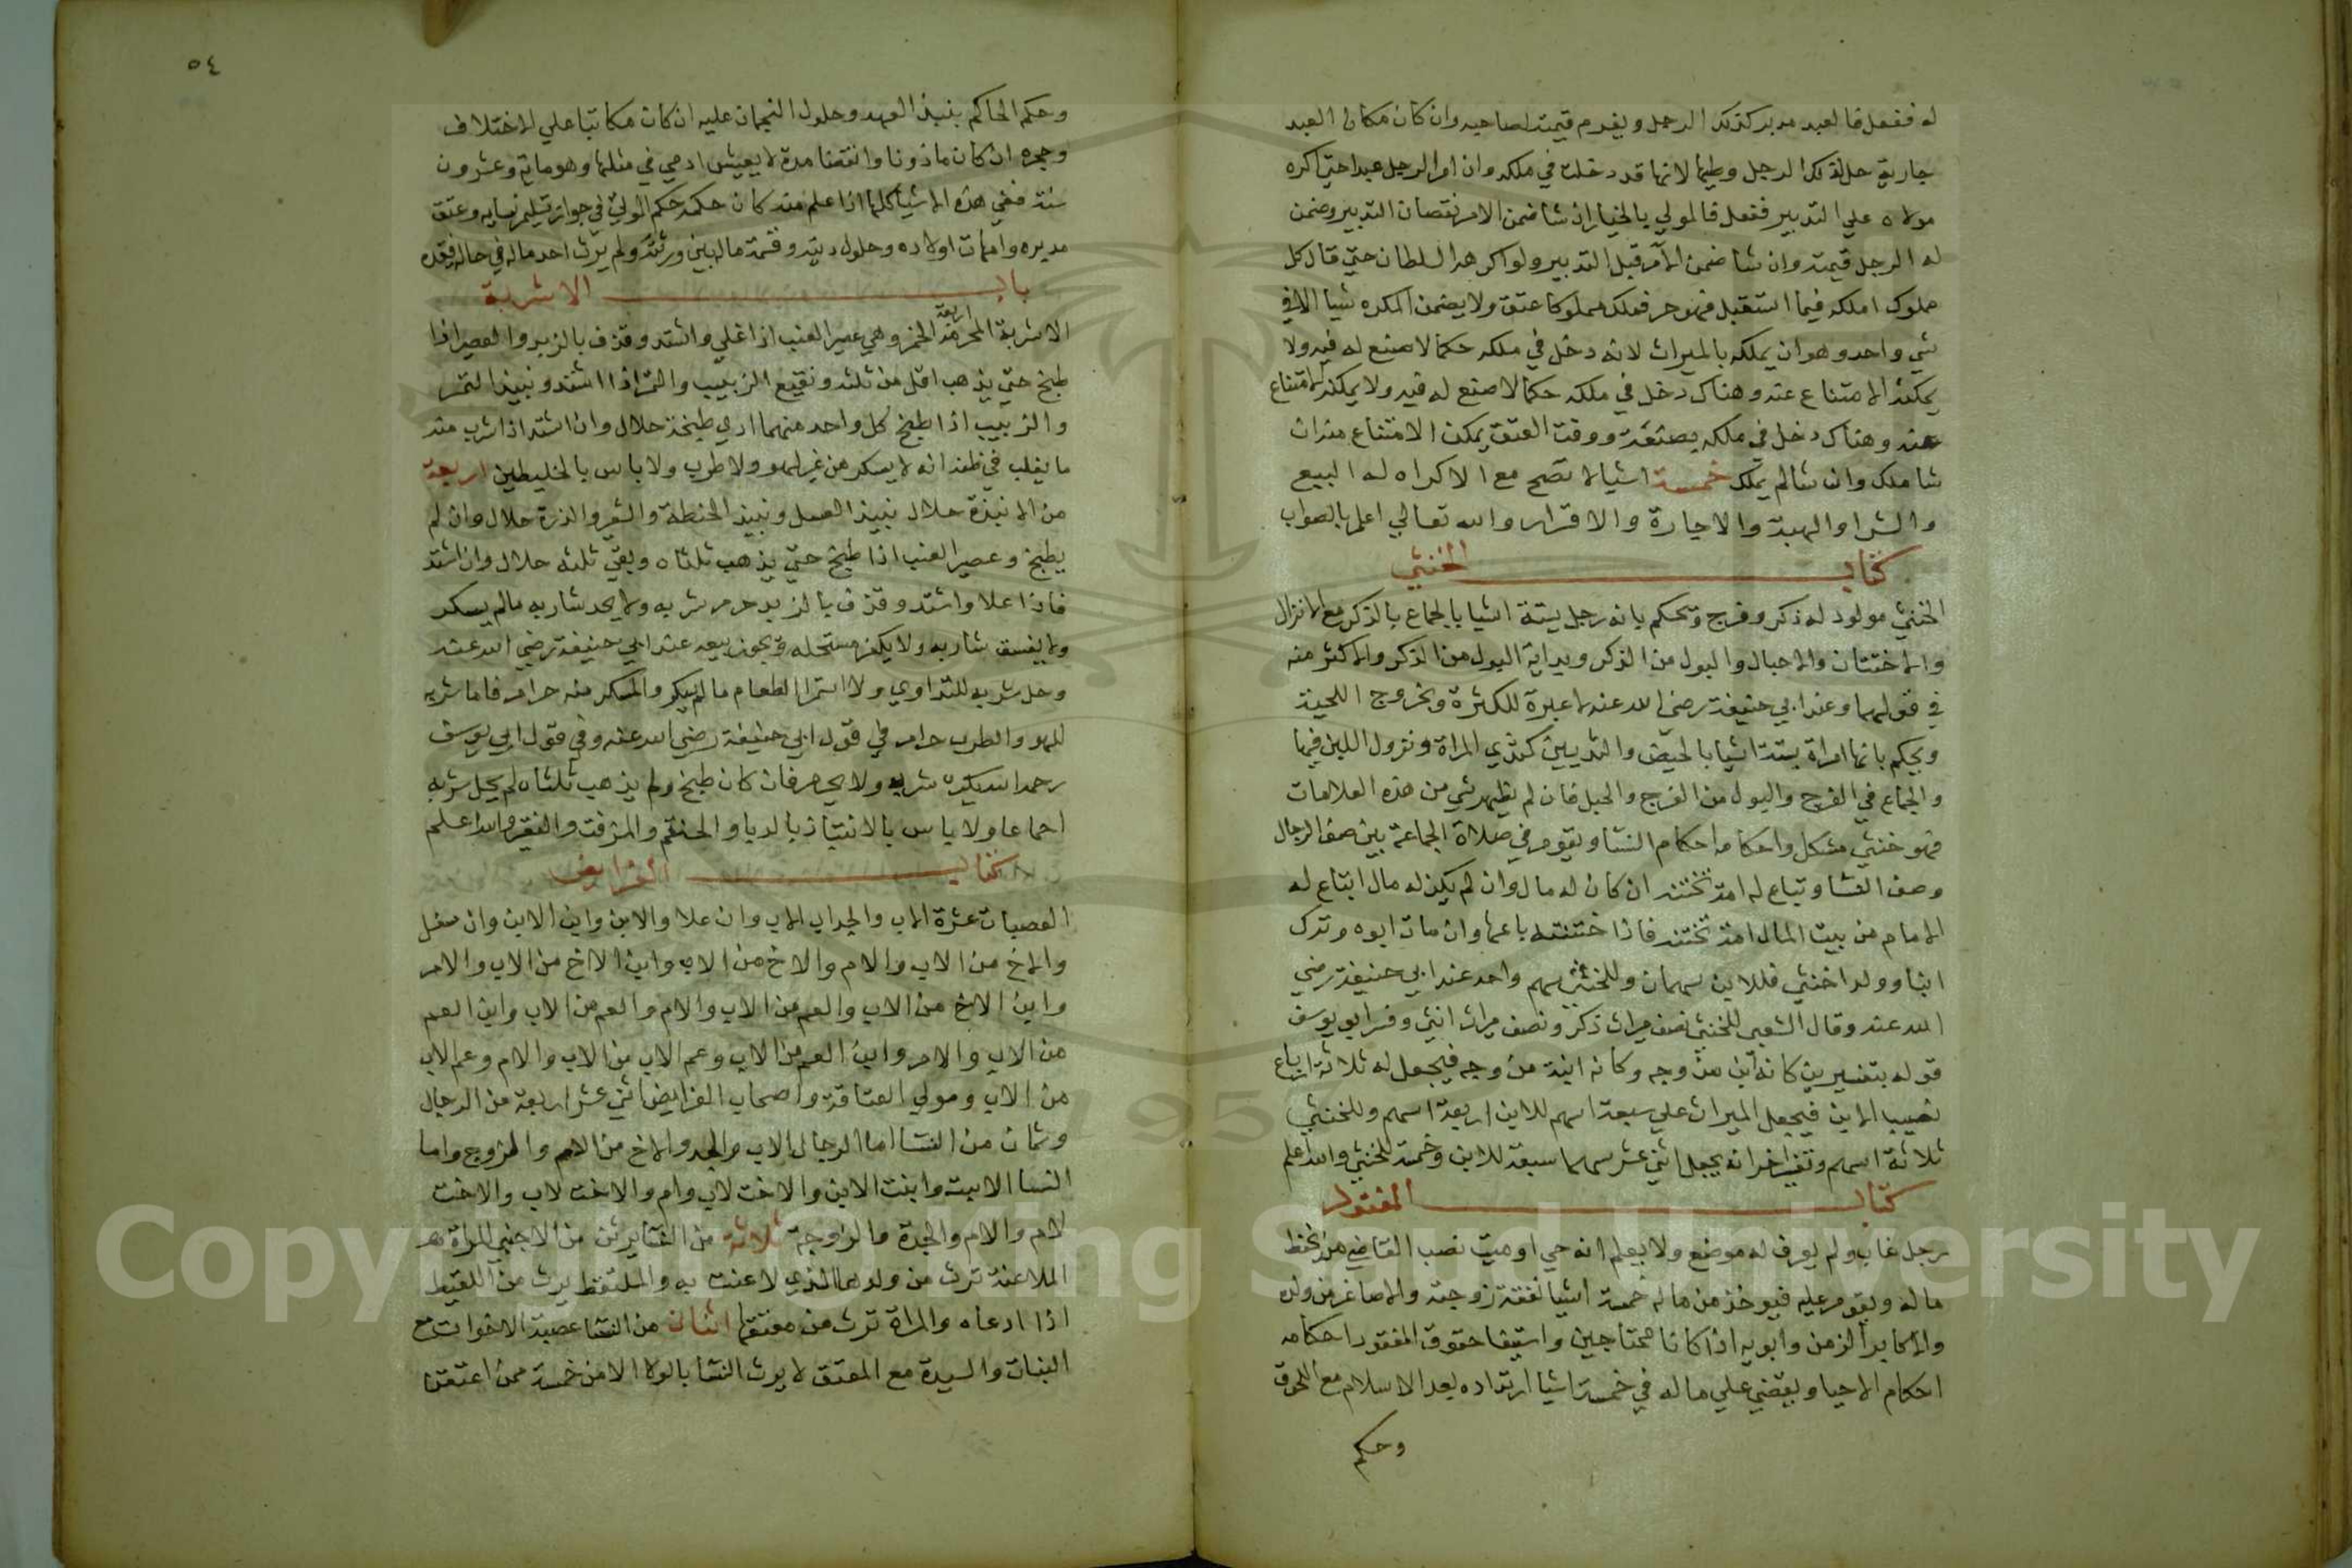 له ففعل فالعبد مدبر لذلك الرجل ويغرم قيمته لصاحبه وان كان مكان العبد
جارية حل لذلك الرجل وطيها لانها قد دخلت في ملكه وان امر الرجل عبدا حتي اكره
مولاه علي التدبير ففعل فالمولي بالخيار ان شا ضمن الامر نقصان التدبير وضمن
له الرجل قيمته وان شا ضمن الآمر قبل التدبير ولو اكرهه السلطان حتي قال كل
مملوك املكه فيما استقبل فهو حر فملك مملوكا عتق ولا يضمن المكره شيا الا في
شي واحد وهو ان يملكه بالميراث لانه دخل في ملكه حكما لا صنع له فيه ولا
يمكنه الامتناع عنه وهناك دخل في ملكه حكما لا صنع له فيه ولا يمكنه الامتناع
عنه وهناك دخل في ملكه بصنعه ووقت العتق يمكن الامتناع منه ان
شا ملك وان شا لم يملك خمسة اشيا لا تصح مع الاكراه له البيع
والشرا والهبة والاجارة والاقرار والله تعالي اعلم بالصواب
كتاب الخنثي
الخنثي مولود له ذكر وفرج ويحكم بانه رجل بستة اشيا بالجماع بالذكر مع الانزال
والاختتان والاحبال والبول من الذكر وبداية البول من الذكر والاكثر منه
في قولهما وعند ابي حنيفة رضي الله عنه لا عبرة للكثرة وبخروج اللحية
ويحكم بانها امراة بستة اشيا بالحيض والثديين كثدي المراة ونزول اللبن فيها
والجماع في الفرج والبول من الفرج والحبل فان لم يظهر شي من هذه العلامات
فهو خنثي مشكل واحكامه احكام النسا ويقوم في صلاة الجماعة بين صف الرجال
وصف النسا وتباع له امة تختنه ان كان له مال وان لم يكن له مال ابتاع له
الامام من بيت المال امة تختنه فاذا ختنته باعها وان مات ابوه وترك
ابنا وولدا خنثي فللابن سهمان وللخنثي سهم واحد عند ابي حنيفة رضي
الله عنه وقال الشعبي للخنثي نصف ميراث ذكر ونصف ميراث انثي وفسر ابو يوسف
قوله بتفسيرين كانه ابن من وجه وكانه ابنة من وجه فيجعل له ثلاثة ارباع
نصيب الابن فيجعل الميراث علي سبعة اسهم للابن اربعة اسهم وللخنثي
ثلاثة اسهم وتفسير اخر انه يجعل اثني عشر سهما سبعة للابن وخمسة للخنثي والله اعلم
كتاب المفقود
رجل غاب ولم يعرف له موضع ولا يعلم انه حي او ميت نصب القاضي من يحفظ
ماله ويقوم عليه فيوخذ من ماله خمسة اشيا نفقة زوجته والاصاغر من ولده
والاكابر الزمن وابويه اذا كانا محتاجين واستيفا حقوق المفقود احكامه
احكام الاحيا ويقضي علي ماله في خمسة اشيا ارتداده بعد الاسلام مع اللحوق
وحكم
٥٤
وحكم الحاكم بنبذ العهد وحلول النجمان عليه ان كان مكاتبا علي الاختلاف
وحجره ان كان ماذونا وانقضا مدة لا يعيش ادمي في مثلها وهو ماية وعشرون
سنة ففي هذه الاشيا كلها اذا علم منه كان حكمه حكم الموتي في جواز تسليم نسايه وعتق
مدبره وامهات اولاده وحلول ديته وقسمة ماله بين ورثته ولم يرث احد ماله في حال فقده
باب الاشربة
الاشربة المحرمة اربعة الخمر وهي عصير العنب اذا غلي واشتد وقذف بالزبد والعصير اذا
طبخ حتي يذهب اقل من ثلثه ونقيع الزبيب والتمر اذا اشتد ونبيذ التمر
والزبيب اذا طبخ كل واحد منهما ادني طبخة حلال وان اشتد اذا شرب منه
ما يغلب في ظنه انه لا يسكر من غير لهو ولا طرب ولا باس بالخليطين اربعة
من الانبذة حلال نبيذ العسل ونبيذ الحنطة والشعير والذرة حلال وان لم
يطبخ وعصير العنب اذا طبخ حتي يذهب ثلثاه وبقي ثلثه حلال وان اشتد
فاذا علا واشتد وقذف بالزبد حرم شربه ولا يحد شاربه مالم يسكر
ولا يفسق شاربه ولا يكفر مستحله ويجوز بيعه عند ابي حنيفة رضي الله عنه
وحل شربه للتداوي ولاستمرا الطعام مالم يسكر والمسكر منه حرام فاما شربه
للهو والطرب حرام في قول ابي حنيفة رضي الله عنه وفي قول ابي يوسف
رحمه الله يكره شربه ولا يحرم فان كان طبخ ولم يذهب ثلثاه لم يحل شربه
اجماعا ولا باس بالانتباذ بالدبا والحنتم والمزفت والنقير والله اعلم
كتاب الفرايض
العصبات عشرة الاب والجد اب الاب وان علا والابن وابن الابن وان سفل
والاخ من الاب والام والاخ من الاب وابن الاخ من الاب والام
وابن الاخ من الاب والعم من الاب والام والعم من الاب وابن العم
من الاب والام وابن العم من الاب وعم الاب من الاب والام وعم الاب
من الاب ومولي العتاقة واصحاب الفرايض اثني عشر اربعة من الرجال
وثمان من النسا اما الرجال الاب والجد والاخ من الام والزوج واما
النسا الابنة وابنت الابن والاخت لاب وام والاخت لاب والاخت
لام والام والجدة والزوجة ثلاثة من النسا يرثن من الاجنبي المراة
الملاعنة ترث من ولدها الذي لاعنت به والملتقط يرث من اللقيط
اذا ادعاه والمراة ترث من معتقها اثنان من النسا عصبة الاخوات مع
البنات والسيدة مع المعتق لا يرث النسا بالولا الا من خمسة ممن اعتقن
Copyright © King Saud University
1957